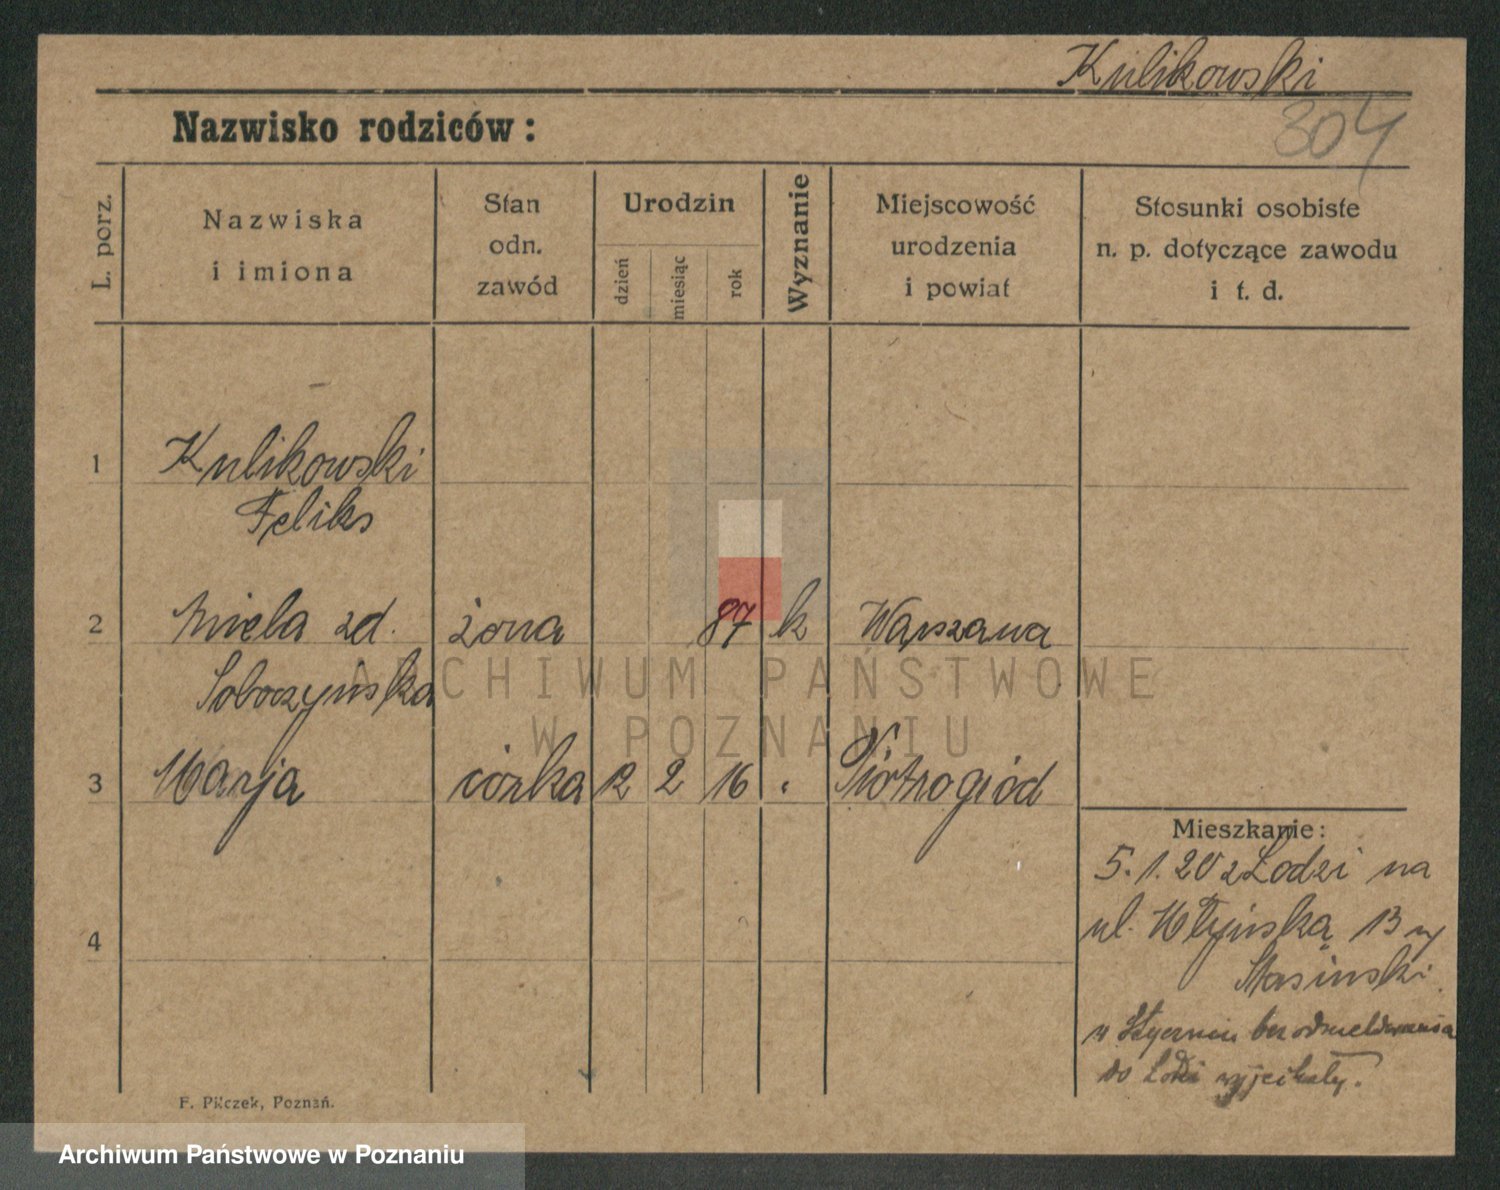 Kulikowski
304
Nazwisko rodziców:
L. porz.
Nazwiska
i imiona
Stan
odn.
zawód
Urodzin
dzień
miesiąc
rok
Wyznanie
Miejscowość
urodzenia
i powiat
Stosunki osobiste
n. p. dotyczące zawodu
i t. d.
1 Kulikowski
Feliks
2 Aniela zd. żona 87 k Warszawa
Soboczyńska
ARCHIWUM PAŃSTWOWE
W POZNANIU
3 Marja córka 12 2 16 Piotrogród
4
Mieszkanie:
5.1.20 z Łodzi na
ul. Młyńska 13
Stasinski
w Styczniu bez odmeldowania
do Łodzi wyjechały.
F. Pilczek, Poznań.
Archiwum Państwowe w Poznaniu